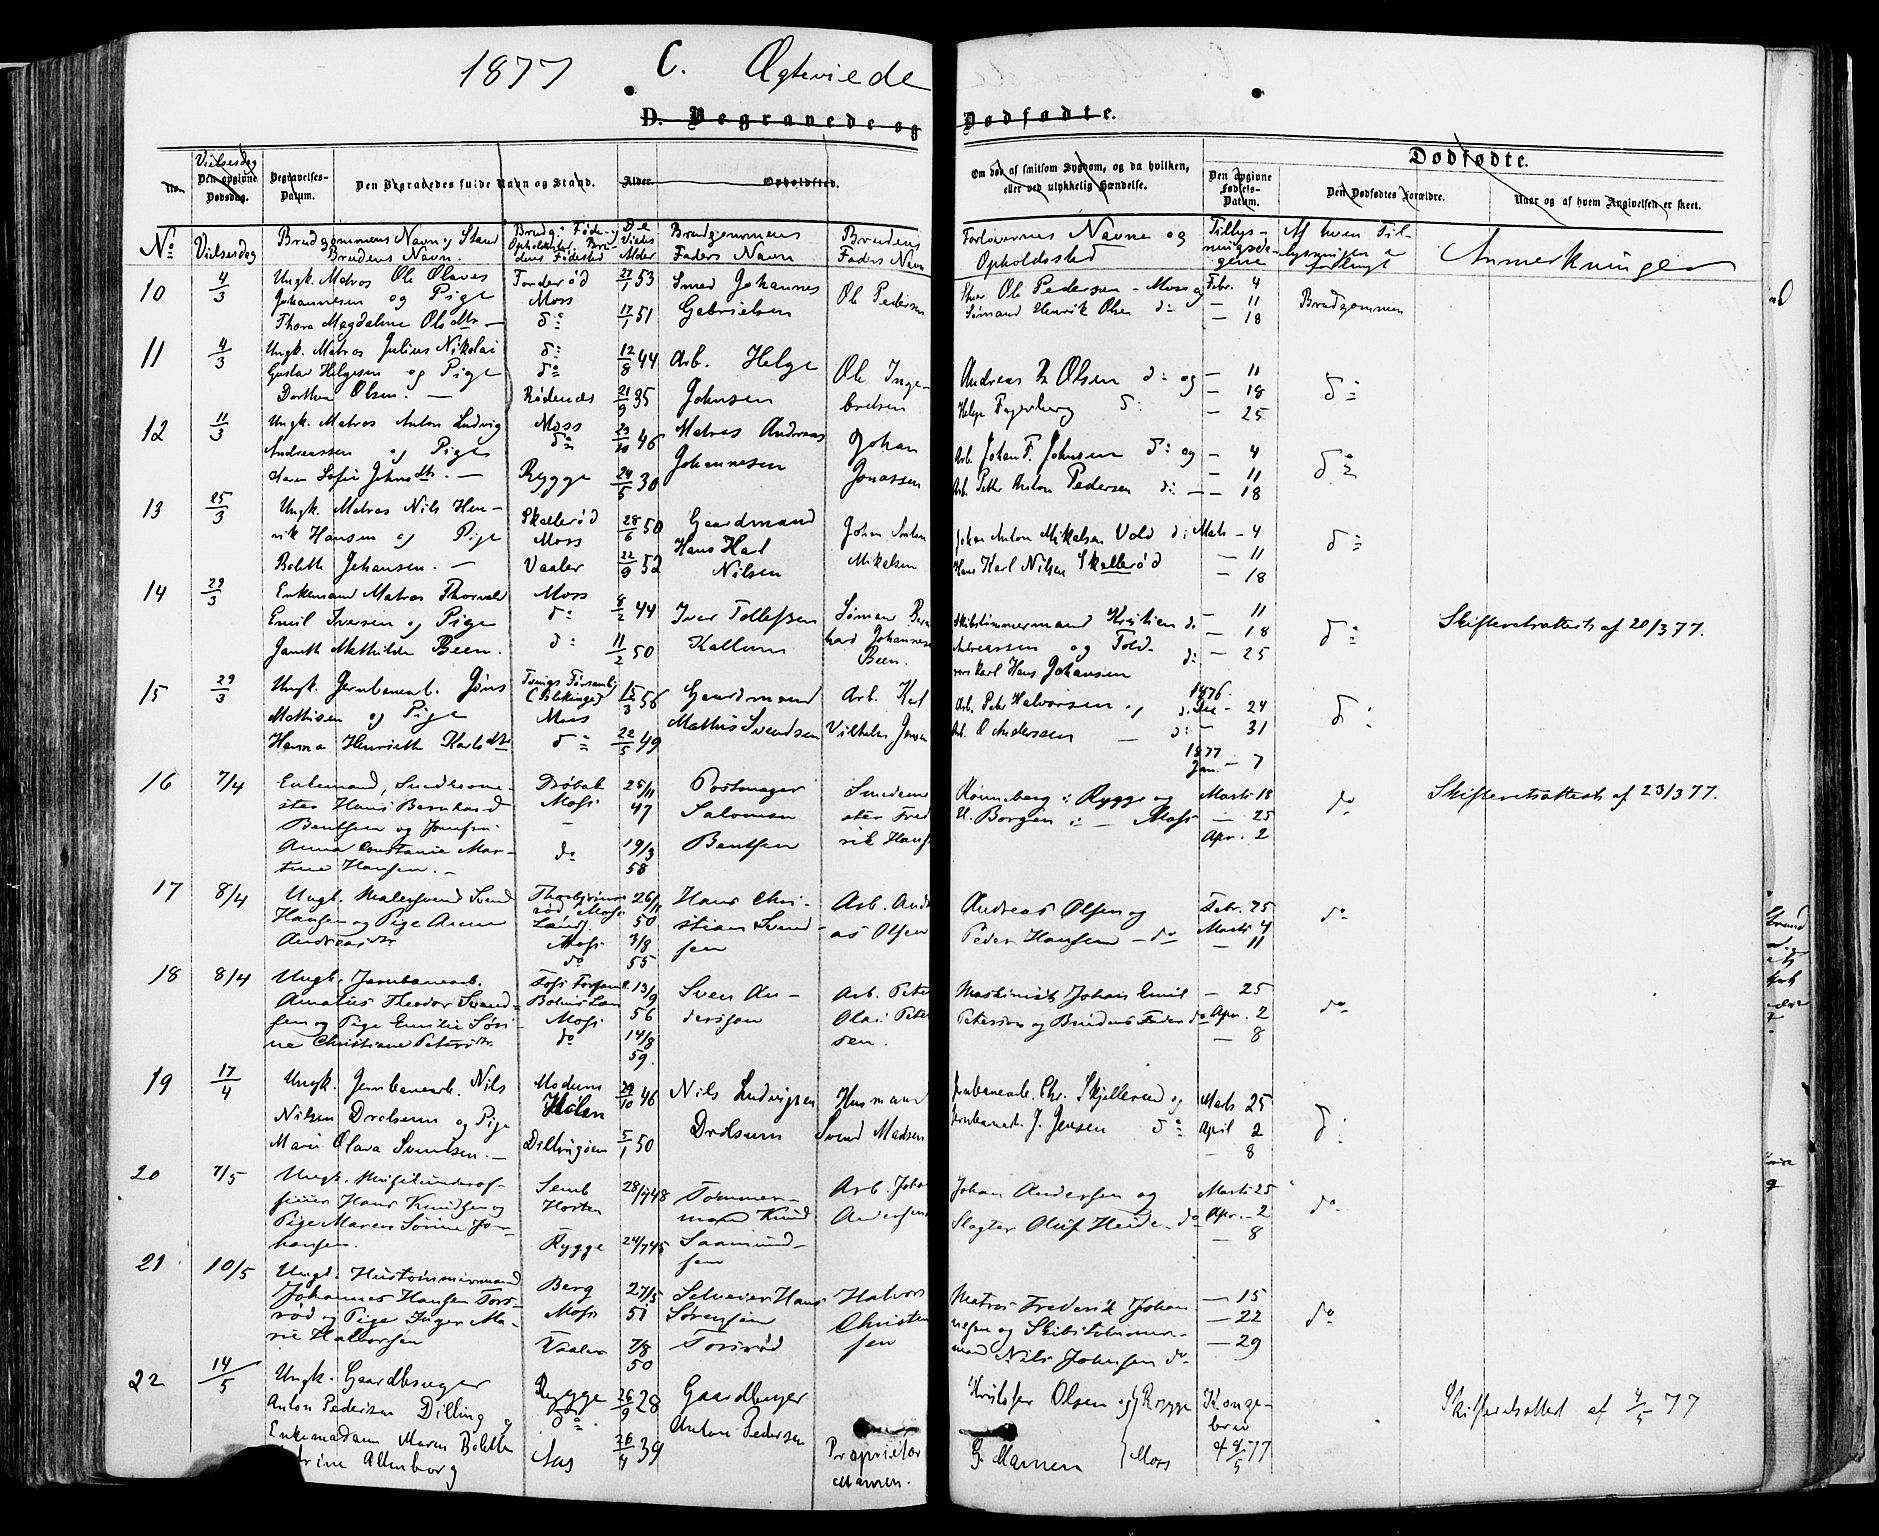 1877 C. Ægteviede
D. Begravede og Dødfødte.
Vielsesdag
No.
Den opgivne Dødsdag.
Begravelses-Datum.
Den Begravedes fulde Navn og Stand.
Alder.
Opholdsted.
Om død af smitsom Sygdom, og da hvilken, eller ved ulykkelig Hændelse.
Dødfødte.
Den opgivne Fødsels-Datum.
Den Dødfødtes Forældre.
Naar og af hvem Angivelsen er skeet.
No
Vielsesdag
Brudgommens Navn og Stand
Brudens Navn.
Brudg. Føde- og
Opholdssted. Bru-
dens Fødested
De
Viedes
Alder
Brudgommens
Faders Navn
Brudens
Faders Navn
Forlovernes Navne og
Opholdssted
Tillys-
ningsda-
gene
Af hvem Til-
lysningen er
forlangt
Anmerkninger
10 4/3
Ungk. Matros Ole Olaves
Johannesen og Pige
Thora Magdalene Olsdtr —
Moss
do
21/1 53
17/1 51
Smed Johannes
Gabrielsen
Ole Pedersen
Ole Pedersen - Moss og
Sømand Henrik Olsen do
Febr. 4
— 11
— 18
Brudgommen
11 4/3
Ungk. Matros Julius Nikolai
Gustav Helgesen og Pige
Dorthea Olsen. —
do
do
Rødenæs
12/8 44
21/9 35
Arb. Helge
Johnsen
Ole Inge-
bretsen
Andreas Olsen do og
Helge Fagerberg do
— 11
— 18
— 25
do
12 11/3
Ungk. Matros Anton Ludvig
Andreassen og Pige
Maren Sofie Johnsdtr. —
Moss
do
Rygge
23/10 46
24/5 30
Matros Andreas
Johannesen
Johan
Jonassen
Arb. Johan F. Johnsen do og
Arb. Peter Anton Pedersen do —
— 4
— 11
— 18
do
13 25/3
Ungk. Matros Nils Hen-
rik Hansen og Pige
Bolette Johansen. —
Skallerød
Moss
Vaaler
28/6 50
22/9 52
Gaardmand
Hans Karl
Nilsen
Johan Anton
Mikelsen
Johan Anton Mikelsen Vold do
Hans Karl Nilsen Skallerød
Marts — 4
— 11
— 18
do
14 29/3
Enkemand Matros Thorvald
Emil Iversen og Pige
Janeth Mathilde Been.
Moss
do
do
8/2 44
11/2 50
Iver Tollefsen
Kallum
Sømand Bern
hard Johannesen
Been.
Skibstømmermand Kristian do
Andreassen og Told-
karl Hans Johansen do
— 11
— 18
— 25
do
Skifteretsattest af 20/3 77.
15 29/3
Ungk. Jernbanearb. Jöns
Mattisen og Pige
Hanna Henriette Karlsdtr
(Blekinge)
Moss
do
15/3 56
22/5 49
Gaardmand
Mathis Svendsen
Arb. Karl
Vilhelm Jensen
Arb. Peter Halvorsen og
Arb. O Anderssen — do
1876.
Dec - 24
— 31
1877
Jan. — 7
do
16 7/4
Enkemand, Snedkerme-
ster Hans Bernhard
Bentsen og Jomfru
Anna Constance Mar-
tine Hansen. —
Drøbak
Moss
—
do
25/11
47
19/3
58
Postmager
Salomon
Bentsen
Smedeme
ster Fred
rik Hans
Rønneberg i Rygge og
U. Borgen i — Moss
Marts 18
— 25
Apr. 2
do
Skifteretsattest af 23/3 77.
17 8/4
Ungk. Malersvend Svend
Hansen og Pige Anna
Andreasdtr
Moss
do
26/11
50
3/8
55
Hans Chri-
stian Svend-
sen
Arb. Andr
as Olsen
Andreas Olsen og
Peder Hansen — do
Febr. 25
Marts 4
— 11
do
18 8/4
Ungk. Jernbanearb.
Amatus Theodor Svend-
sen og Pige Emilie Søri-
ne Christiane Petersdtr.
Moss
do
13/9
56
14/8
59.
Sven An-
derssen
Arb. Peter
Olai Peter
sen.
Maskinist Johan Emil
Peterson og Brudens Fader do
— 25
Apr. 2
— 8
do
19 17/4
Ungk. Jernbanearb. Nils
Nilsen Drolsum og Pige
Marie Olava Svendsen. —
Modum
Hølen
Dillingøen
29/10 46
5/1 50
Nils Ludvigsen
Drolsum
Husmand
Svend Madsen
Jernbanearb. Chr. Skjellerud og
Jernbanearb. J. Jensen do
Marts 25
April 2
— 8
do
20 7/5
Ungk. Musikunderof-
ficier Hans Knudsen og
Pige Maren Sørine Jo-
hansen.
Semb
Horten
Rygge
28/7 48
24/7 45
Tømmer-
mand Knud
Saamund-
sen
Arb. Johan
Andersen
Johan Andersen og
Slagter Oluf Heide do
Marts 25
Apr. — 2
— 8
do
21 10/5
Ungk. Hustømmermand
Johannes Hansen Tors-
rød og Pige Inger Ma-
rie Halvorsen
Berg
Moss
Vaaler
27/5
51
7/8
50
Selveier Hans
Sørensen
Torsrød
Halvor
Christen
sen
Matros Frederik Johan
nesen og Skibstømmer-
mand Nils Johnsen do.
— 15
— 22
— 29
do
22 14/5
Ungk. Gaardbruger
Anton Pedersen Dilling og
Enkemadam Maren Bolette
Altenborg
Rygge
do
Aas
26/9 28
26/4 39
Gaardbruger
Anton Pedersen
Proprietær
Mamen.
Kristofer Olsen og } Rygge
G. Mamen } Moss
Konge-
brev
af 4/5 77
Skifteretsattest af 4/5 77